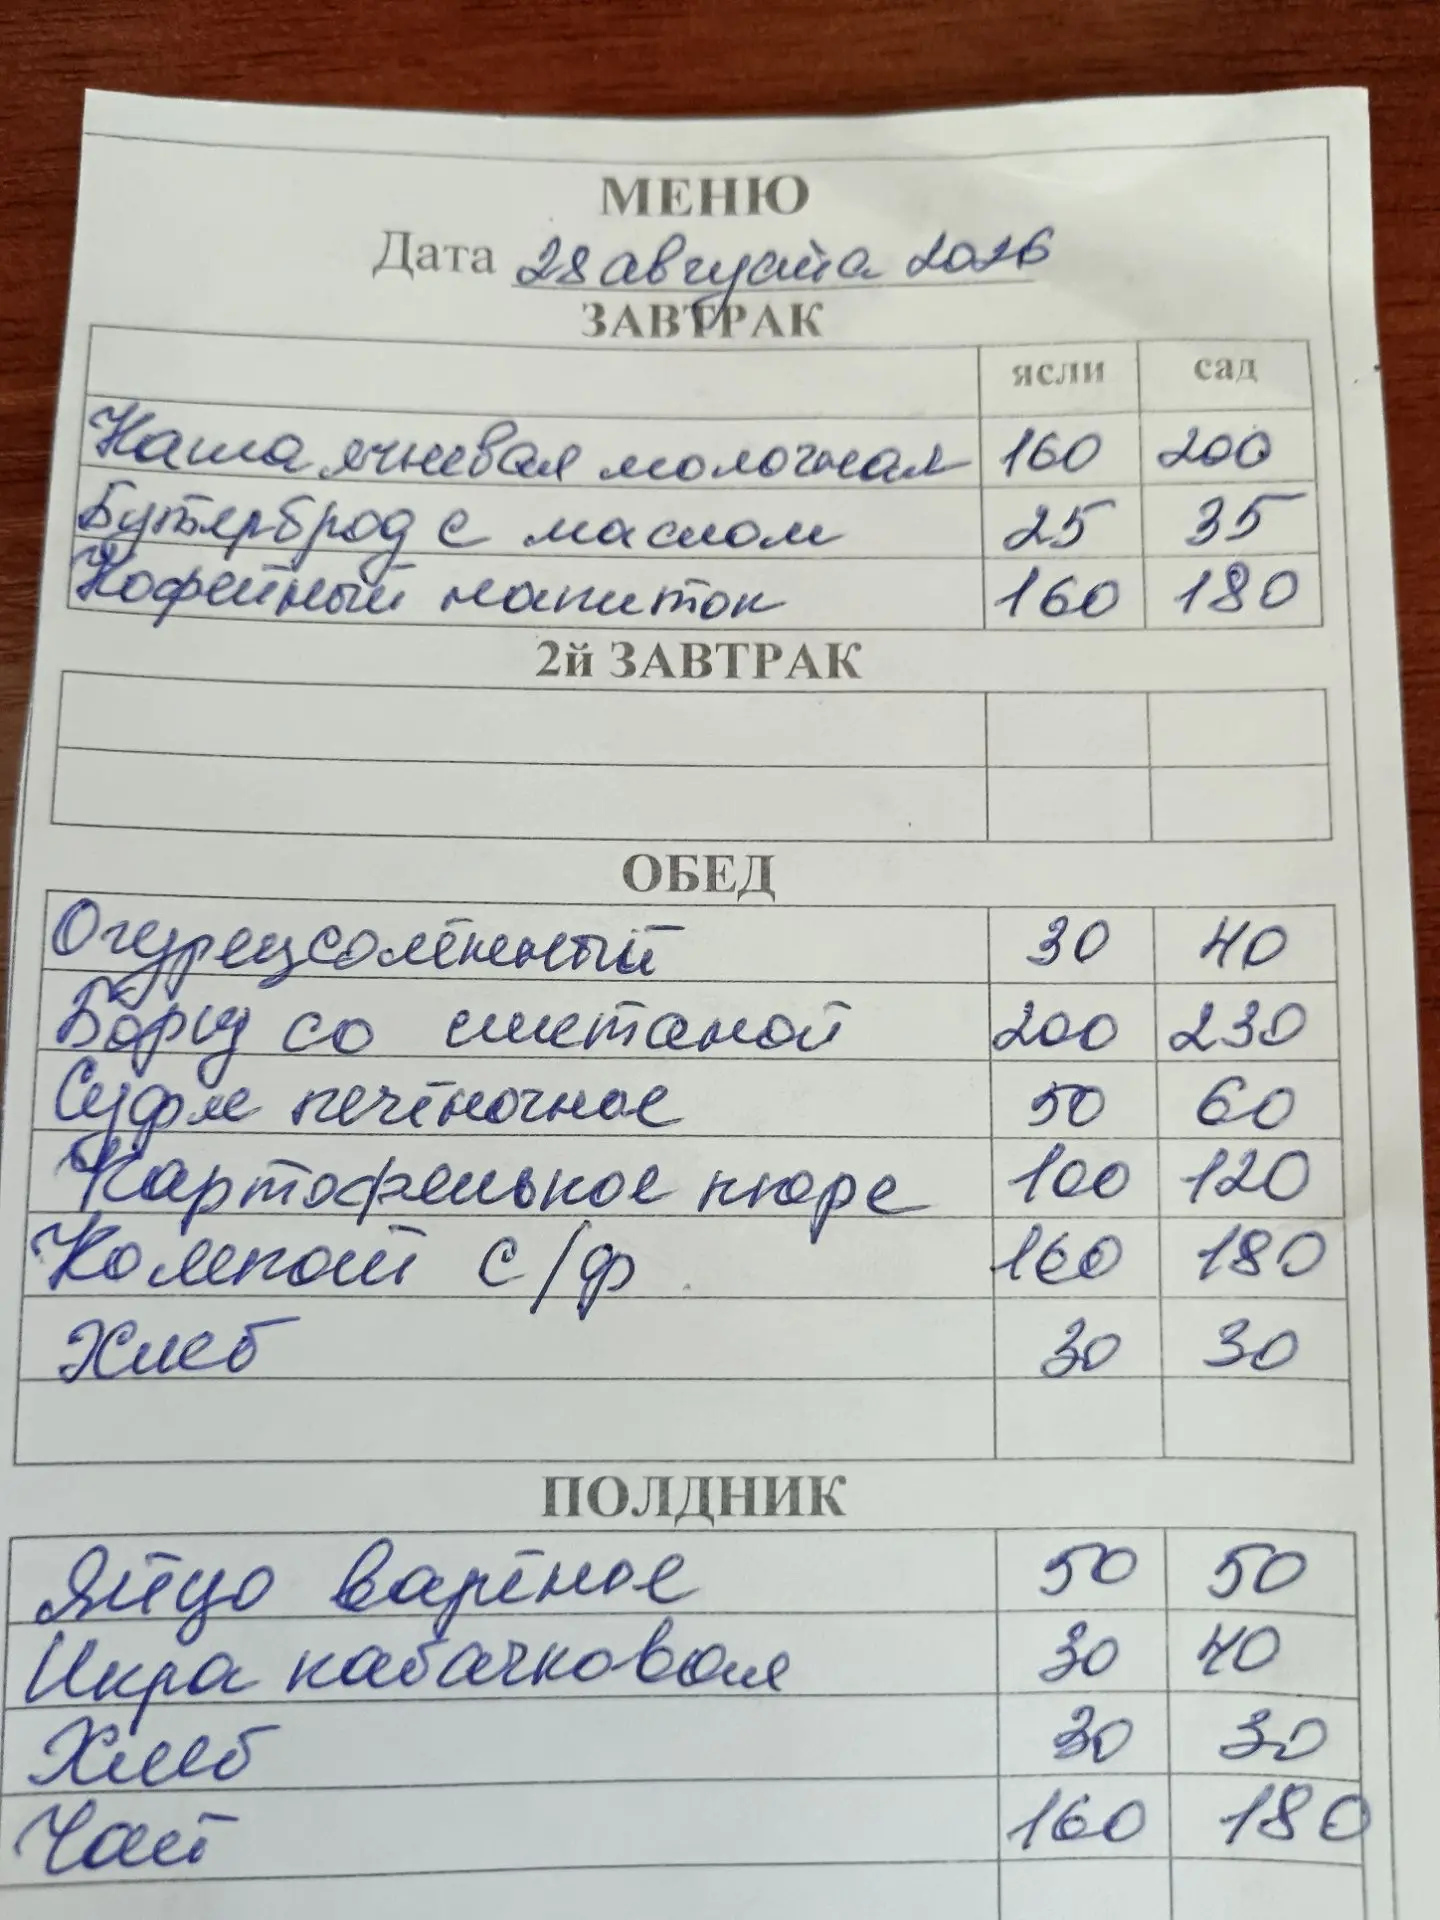 МЕНЮ
Дата 28 августа 2026
ЗАВТРАК
ясли сад
Каша ячневая молочная 160 200
Бутерброд с маслом 25 35
Кофейный напиток 160 180
2й ЗАВТРАК
ОБЕД
Огурец солёный 30 40
Борщ со сметаной 200 230
Суфле печёночное 50 60
Картофельное пюре 100 120
Компот с/ф 160 180
Хлеб 30 30
ПОЛДНИК
Яйцо варёное 50 50
Икра кабачковая 30 40
Хлеб 30 30
Чай 160 180